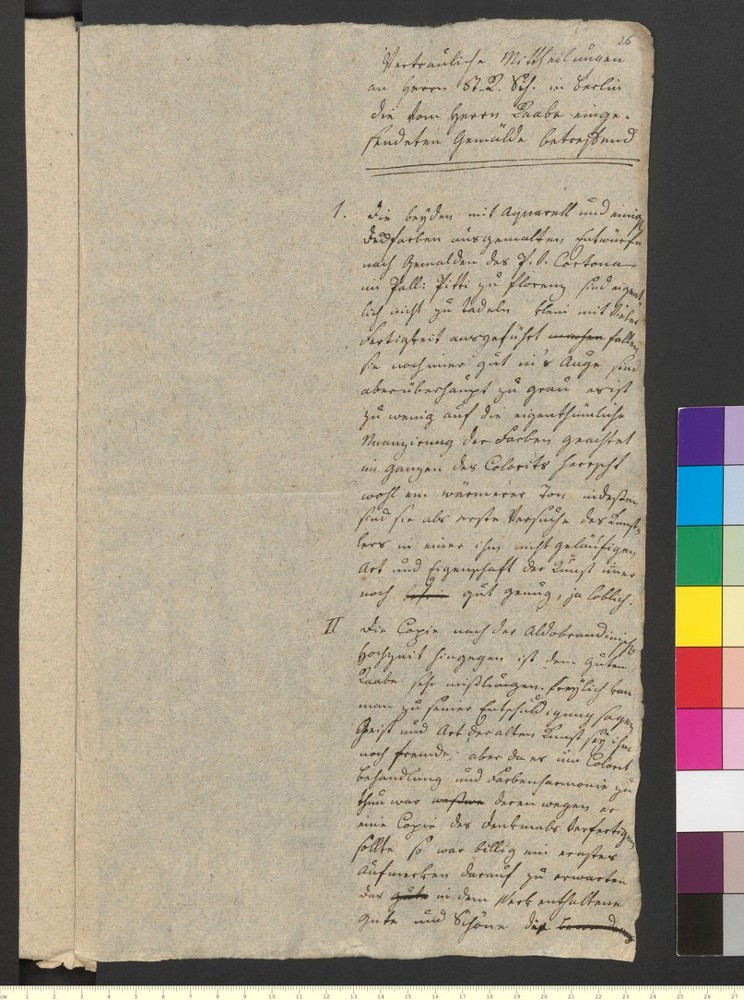 26
Vertrauliche Mittheilungen
an Herrn St. R. Sch. in Berlin
die vom Herrn Raabe einge-
sendeten Gemälde betreffend
1. Die beyden mit Aquarell und einig
Deckfarben ausgemalten, Entwürfe
nach Gemälden des P. d. Cortona
im Pall: Pitti zu Florenz sind eigent
lich nicht zu tadeln klein mit vieler
Fertigkeit ausgeführt machen fallen
sie noch immer gut in's Auge sind
aber überhaupt zu grau es ist
zu wenig auf die eigenthümliche
Nuanzirung der Farben geachtet
im ganzen des Colorits herrscht
wohl ein wärmerer Ton indessen
sind sie als erste Versuche des Künst
lers in einer ihm nicht geläufigen
Art und Eigenschaft der Kunst immer
noch gut genug, ja löblich.
II Die Copie nach der Aldobrandinisch
Hochzeit hingegen ist dem guten
Raabe sehr mißlungen. freylich kan
man zu seiner Entschuldigung sagen
Geist und Art der alten Kunst sey ihm
noch fremde, aber da es um Colorit
behandlung und Farbenharmonie zu
thun war deren wegen er
eine Copie des Denkmals verfertigen
sollte so war billig ein ernstes
Aufmerken darauf zu erwarten
das gute in dem Werk enthaltene
Gute und Schöne